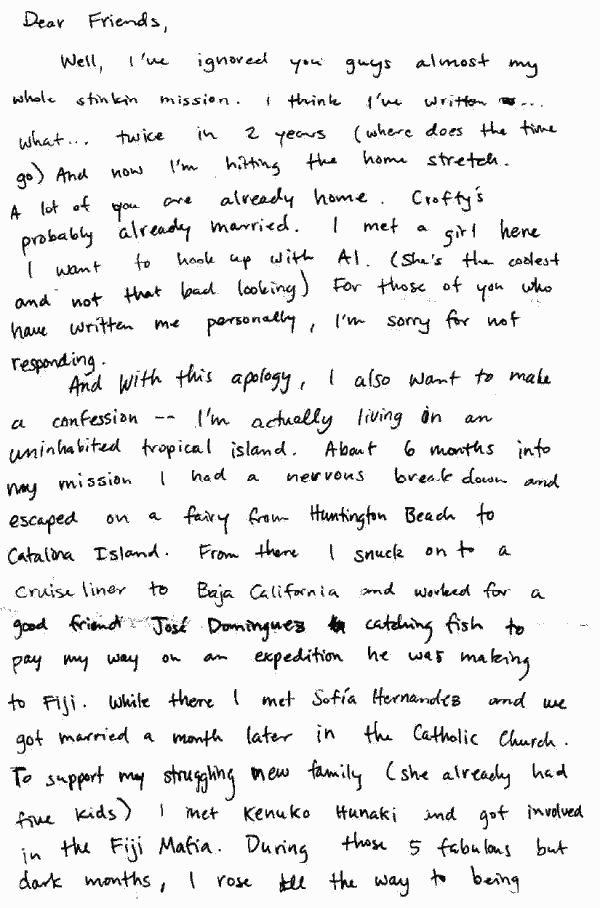 Dear Friends,
Well, I've ignored you guys almost my
whole stinkin mission. I think I've written ...
what... twice in 2 years (where does the time
go) And now I'm hitting the home stretch.
A lot of you are already home. Crofty's
probably already married. I met a girl here
I want to hook up with Al. (She's the coolest
and not that bad looking) For those of you who
have written me personally, I'm sorry for not
responding.
And With this apology, I also want to make
a confession -- I'm actually living in an
uninhabited tropical island. About 6 months into
my mission I had a nervous breakdown and
escaped on a fairy from Huntington Beach to
Catalina Island. From there I snuck on to a
cruise liner to Baja California and worked for a
good friend José Dominguez catching fish to
pay my way on an expedition he was making
to Fiji. While there I met Sofía Hernandez and we
got married a month later in the Catholic Church.
To support my struggling new family (she already had
five kids) I met Kenuko Hunaki and got involved
in the Fiji Mafia. During those 5 fabulous but
dark months, I rose all the way to being